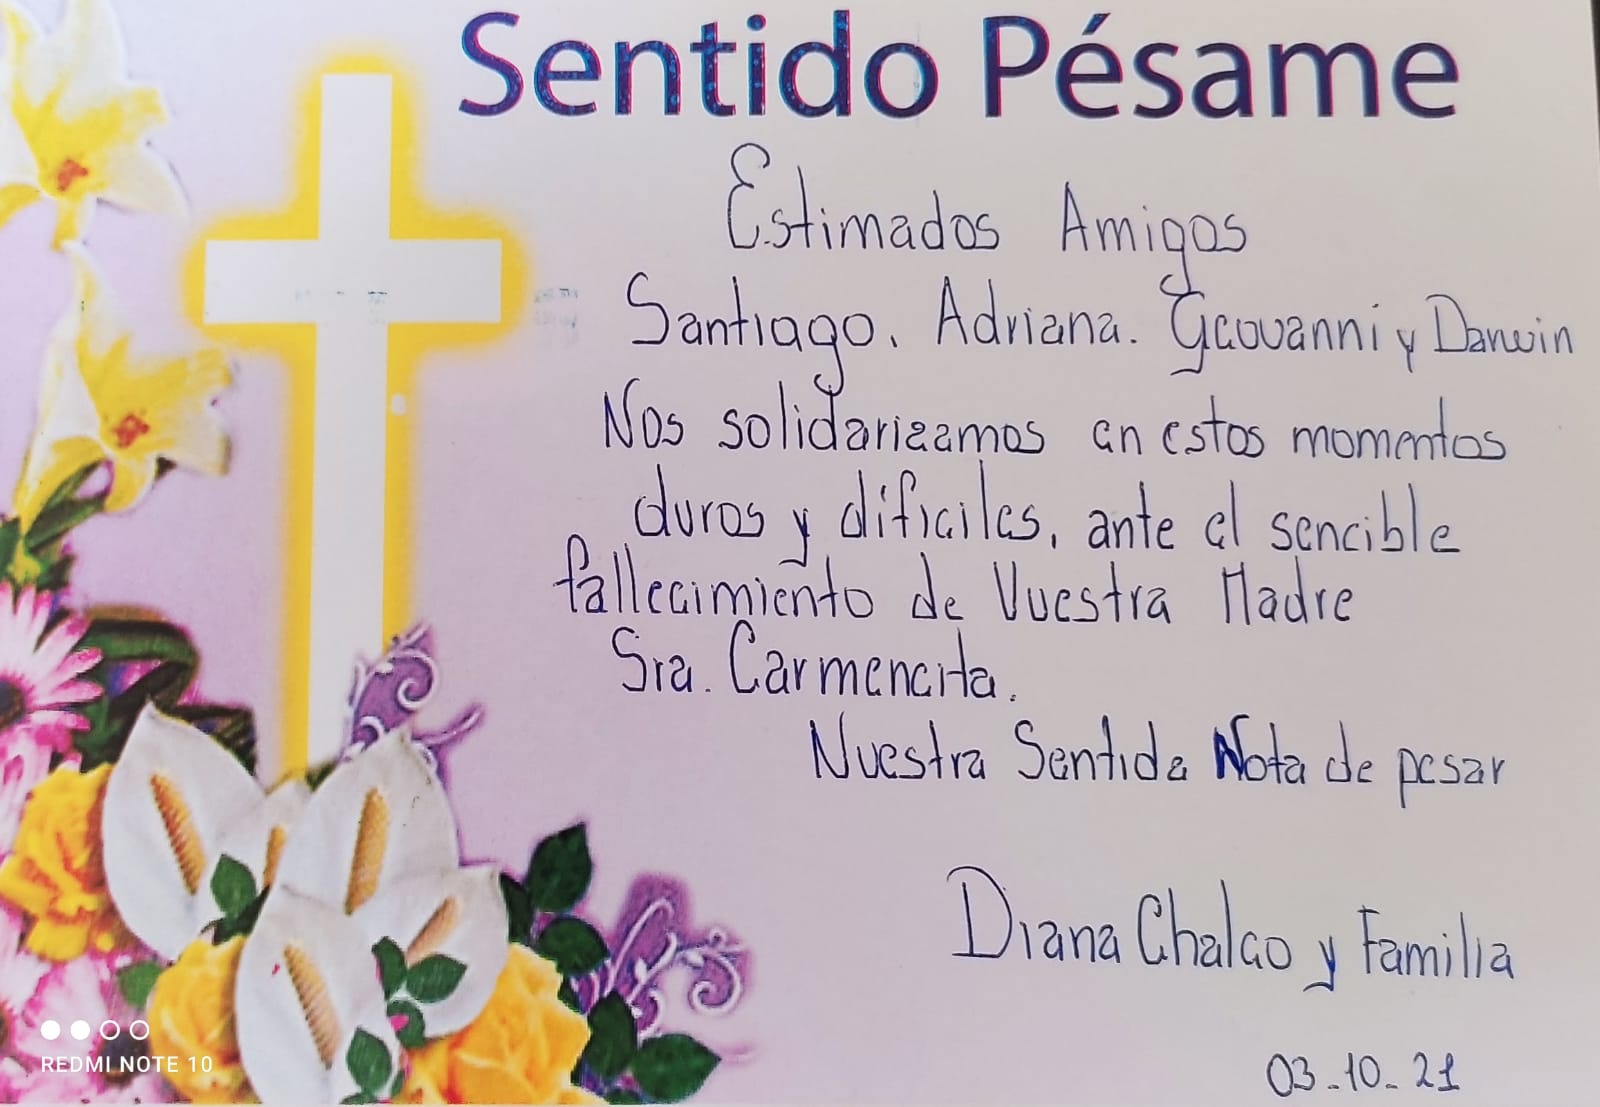 Sentido Pésame
Estimados Amigos
Santiago, Adriana. Geovanni y Darwin
Nos solidarizamos en estos momentos
duros y dificiles, ante el sencible
fallecimiento de Vuestra Madre
Sra. Carmencita.
Nuestra Sentida Nota de pesar
Diana Chalco y Familia
03-10-21
REDMI NOTE 10